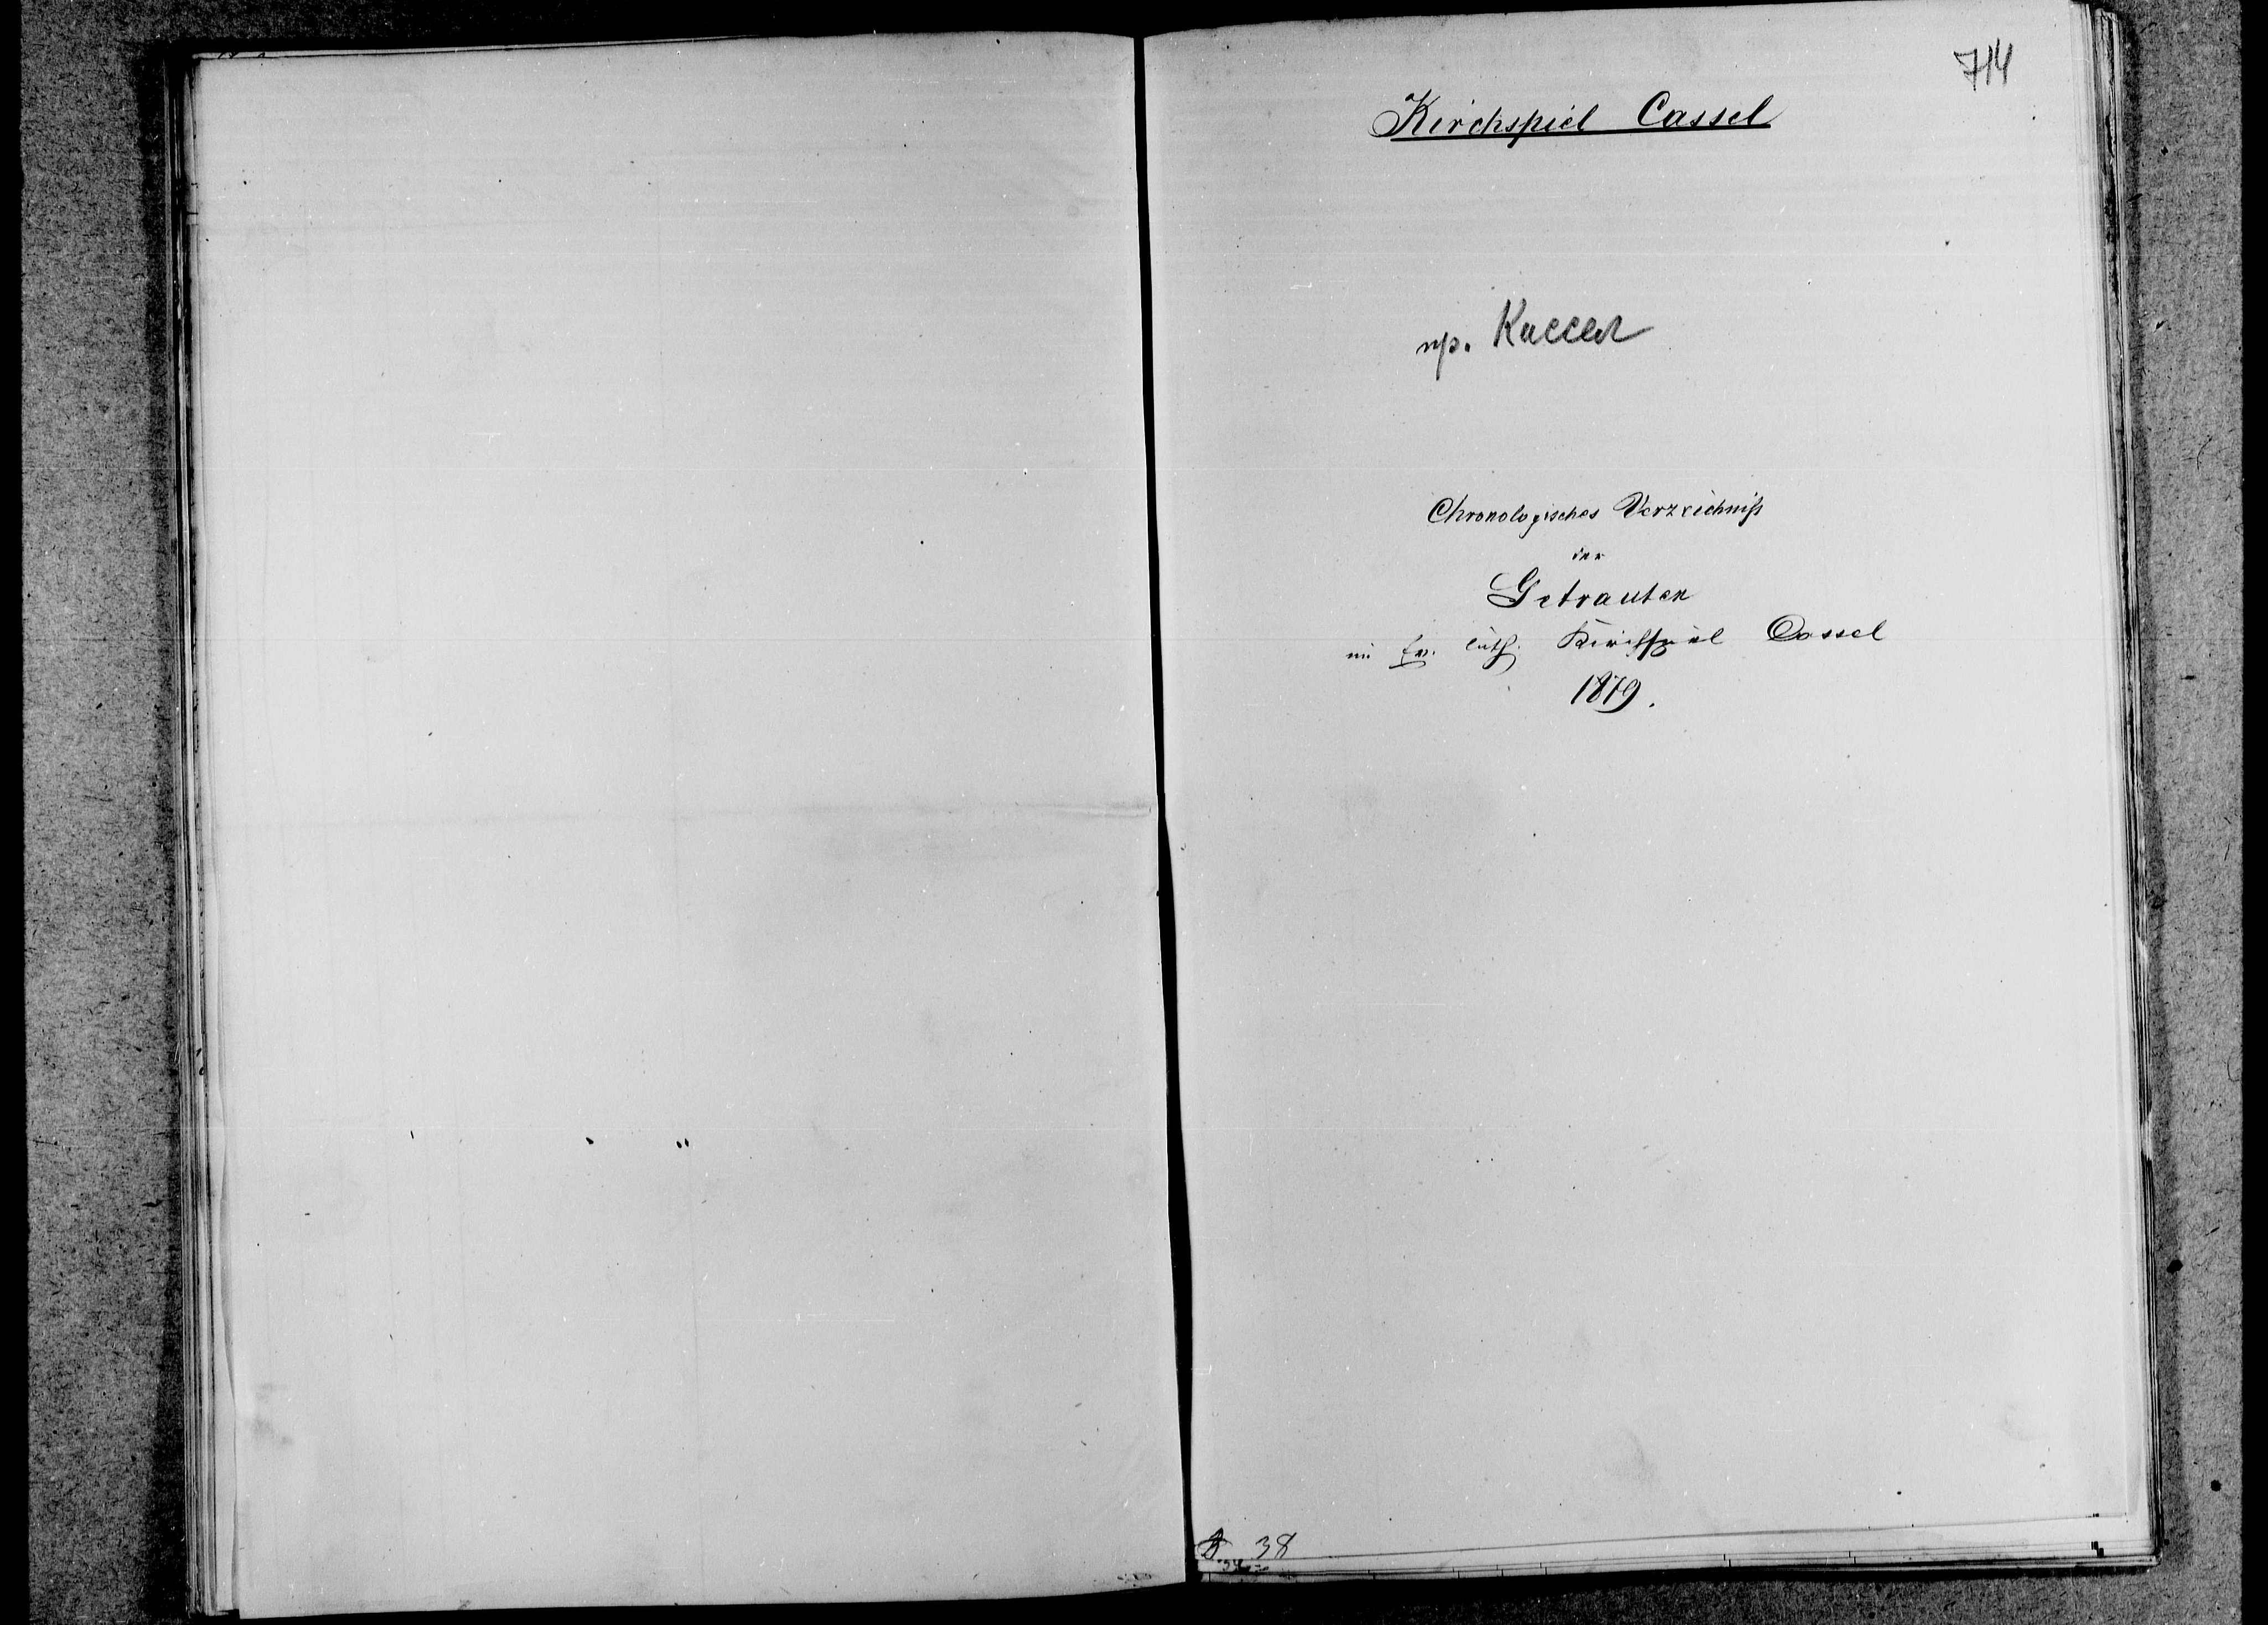 714
Kirchspiel Cassel
пр. Кассел
Chronologisches Verzeichniß
der
Getrauten
im Ev. luth. Kirchspiel Cassel
1879.
38